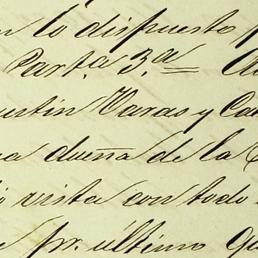 lo dispuesto
Part.a 3.a
Varas y
dueña de la
vista con todo
pr. último